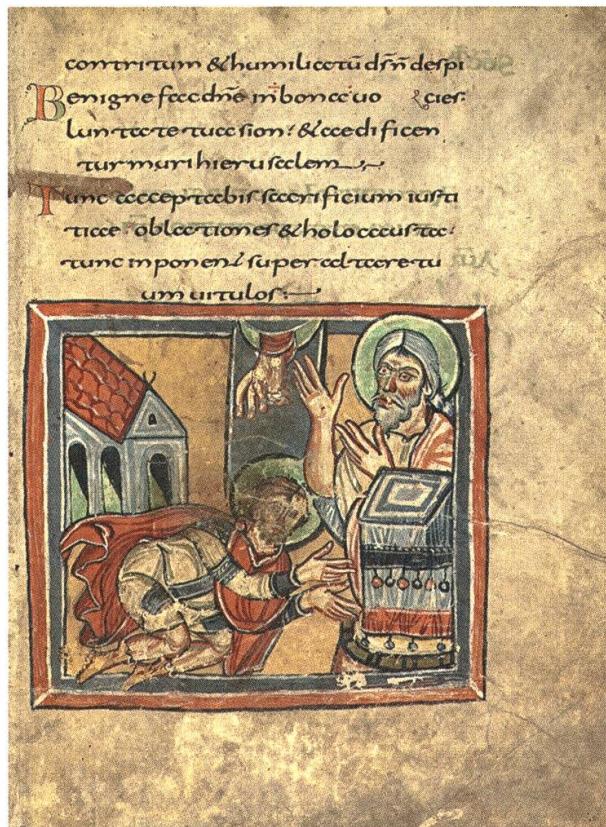 contritum & humiliatū dsñ despi
Benigne fac dñe in bona uo cies:
luntate tua sion: & aedificen
tur muri hierusalem
Tunc acceptabis sacrificium iusti
tiae oblationes & holocausta:
tunc inponent super altare tu
um uitulos: